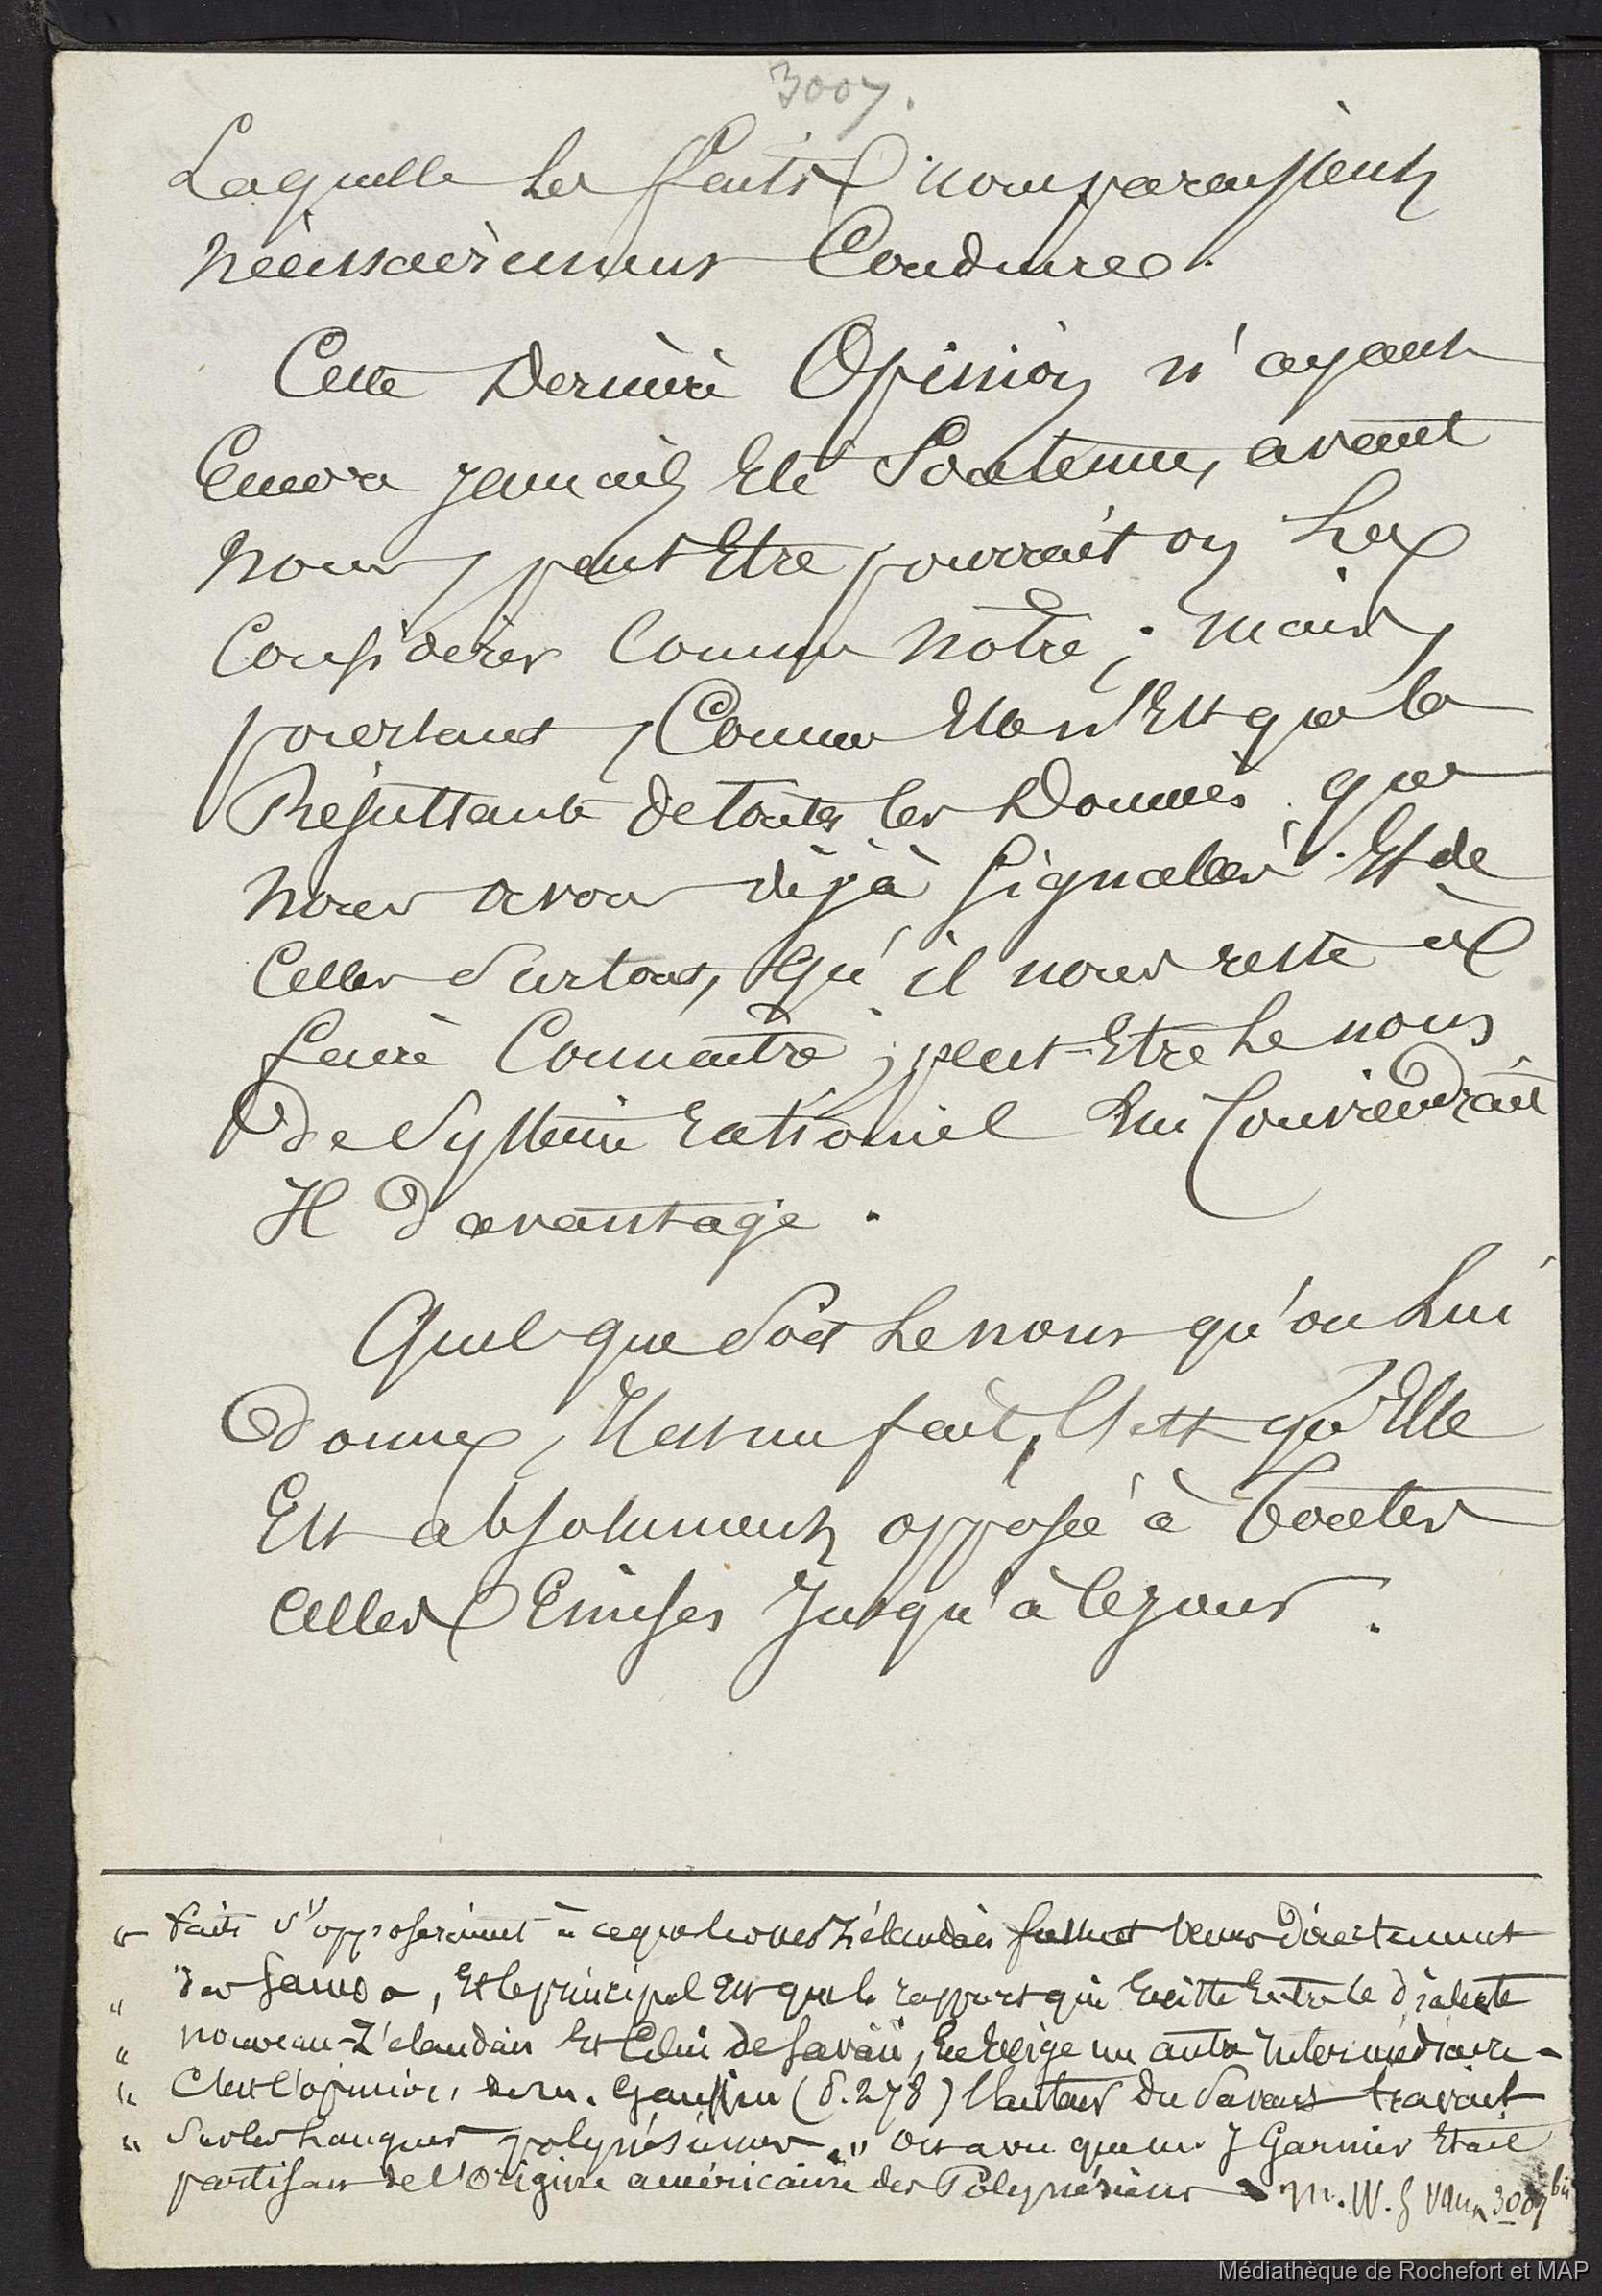 3007.
Laquelle les faits nous paraissent
nécessairement Conduire.
Cette Dernière Opinion n'ayant
Encore jamais Eté Soutenue, avant
nous, peut Etre pourrait on la
Considérer Comme nôtre ; mais,
pourtant, Comme Elle n'Est que la
Résultante de toutes les Données que
nous avons déjà signalées Et de
Celles surtout, qu'il nous reste à
faire Connaître ; peut-Etre le nom
de Système rationnel lui Conviendrait
Il Davantage.
Quel que soit le nom qu'on lui
Donne, Il est un fait, C'est qu'Elle
Est absolument opposée à toutes
Celles Emises jusqu'à ce jour.
" faits s'opposeraient à ce que les nes Zélandais fussent venus Directement
" des Samoa, Et le principal Est que le rapport qui Existe Entre le dialecte
" nouveau-Zélandais Et Celui de Savaii, En Exige un autre Intermédiaire -
" C'est l'opinion, de M. Gaussin (p. 278) l'auteur du savant travail
" Sur les langues polynésiennes. " On a vu que M. J Garnier Etait
partisan de l'origine américaine des Polynésiens - M. W. 3007 bis
Médiathèque de Rochefort et MAP